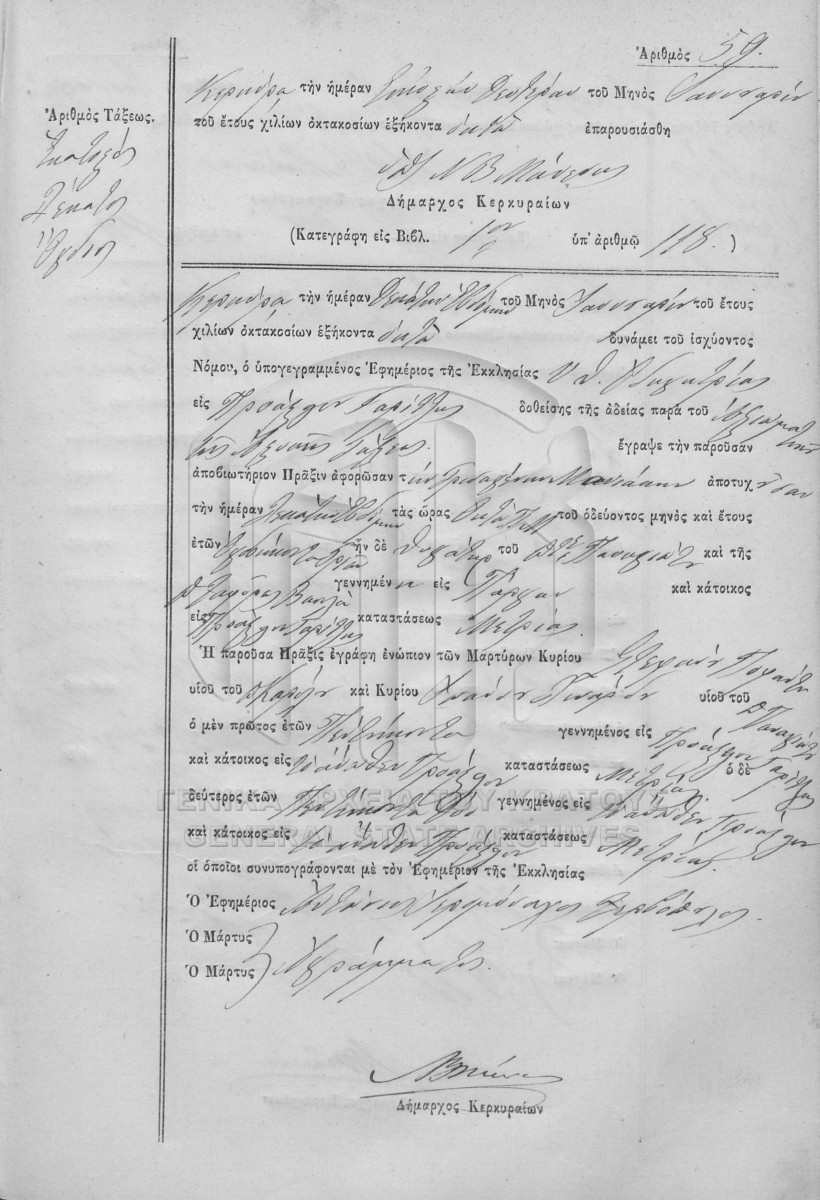 Ἀριθμὸς 59.
Ἀριθμὸς Τάξεως.
Ἑκατοστὸς
Δέκατος
Ὄγδοος
Κερκύρα τὴν ἡμέραν Εἰκοστὴν Δευτέραν τοῦ Μηνὸς Ἰανουαρίου
τοῦ ἔτους χιλίων ὀκτακοσίων ἑξήκοντα ὀκτὼ ἐπαρουσιάσθη
Δήμαρχος Κερκυραίων
(Κατεγράφη εἰς Βιβλ. 1ον ὑπ' ἀριθμῷ 118.)
Κερκύρα τὴν ἡμέραν Δεκάτην Ἑβδόμην τοῦ Μηνὸς Ἰανουαρίου τοῦ ἔτους
χιλίων ὀκτακοσίων ἑξήκοντα ὀκτὼ δυνάμει τοῦ ἰσχύοντος
Νόμου, ὁ ὑπογεγραμμένος Ἐφημέριος τῆς Ἐκκλησίας Υ. Θ. Ὁδηγητρίας
εἰς Προάστιον Γαρίτζας δοθείσης τῆς ἀδείας παρὰ τοῦ Ἀξιωματικοῦ
τῆς Τάξεως. ἔγραψε τὴν παροῦσαν
ἀποβιωτήριον Πρᾶξιν ἀφορῶσαν τὴν ἀποτυχήσαν
τὴν ἡμέραν Δεκάτην Ἑβδόμην τὰς ὥρας Ὀκτὼ Π.Μ τοῦ ὁδεύοντος μηνὸς καὶ ἔτους
ἐτῶν Τριῶν ἦν δὲ θυγάτηρ τοῦ ποτὲ Παναγιώτη καὶ τῆς
γεννημένη εἰς Πάργαν καὶ κάτοικος
εἰς Προάστιον Γαρίτζας καταστάσεως Μετρίας.
Ἡ παροῦσα Πρᾶξις ἐγράφη ἐνώπιον τῶν Μαρτύρων Κυρίου Στεφανῆ
υἱοῦ τοῦ καὶ Κυρίου υἱοῦ τοῦ π. Παναγιώτη
ὁ μὲν πρῶτος ἐτῶν Πεντήκοντα γεννημένος εἰς Προάστιον Γαρίτζας
καὶ κάτοικος εἰς τὸ ἄνωθεν Προάστιον καταστάσεως Μετρίας. ὁ δὲ
δεύτερος ἐτῶν Πεντήκοντα Δύο γεννημένος εἰς τὸ ἄνωθεν Προάστιον
καὶ κάτοικος εἰς τὸ ἄνωθεν Προάστιον καταστάσεως Μετρίας.
οἱ ὁποῖοι συνυπογράφονται μὲ τὸν Ἐφημέριον τῆς Ἐκκλησίας
Ὁ Ἐφημέριος Ἀντώνιος Ἱερομόναχος
Ὁ Μάρτυς
Ὁ Μάρτυς Ἀγράμματοι.
Δήμαρχος Κερκυραίων
ΓΕΝΙΚΑ ΑΡΧΕΙΑ ΤΟΥ ΚΡΑΤΟΥΣ
GENERAL STATE ARCHIVES